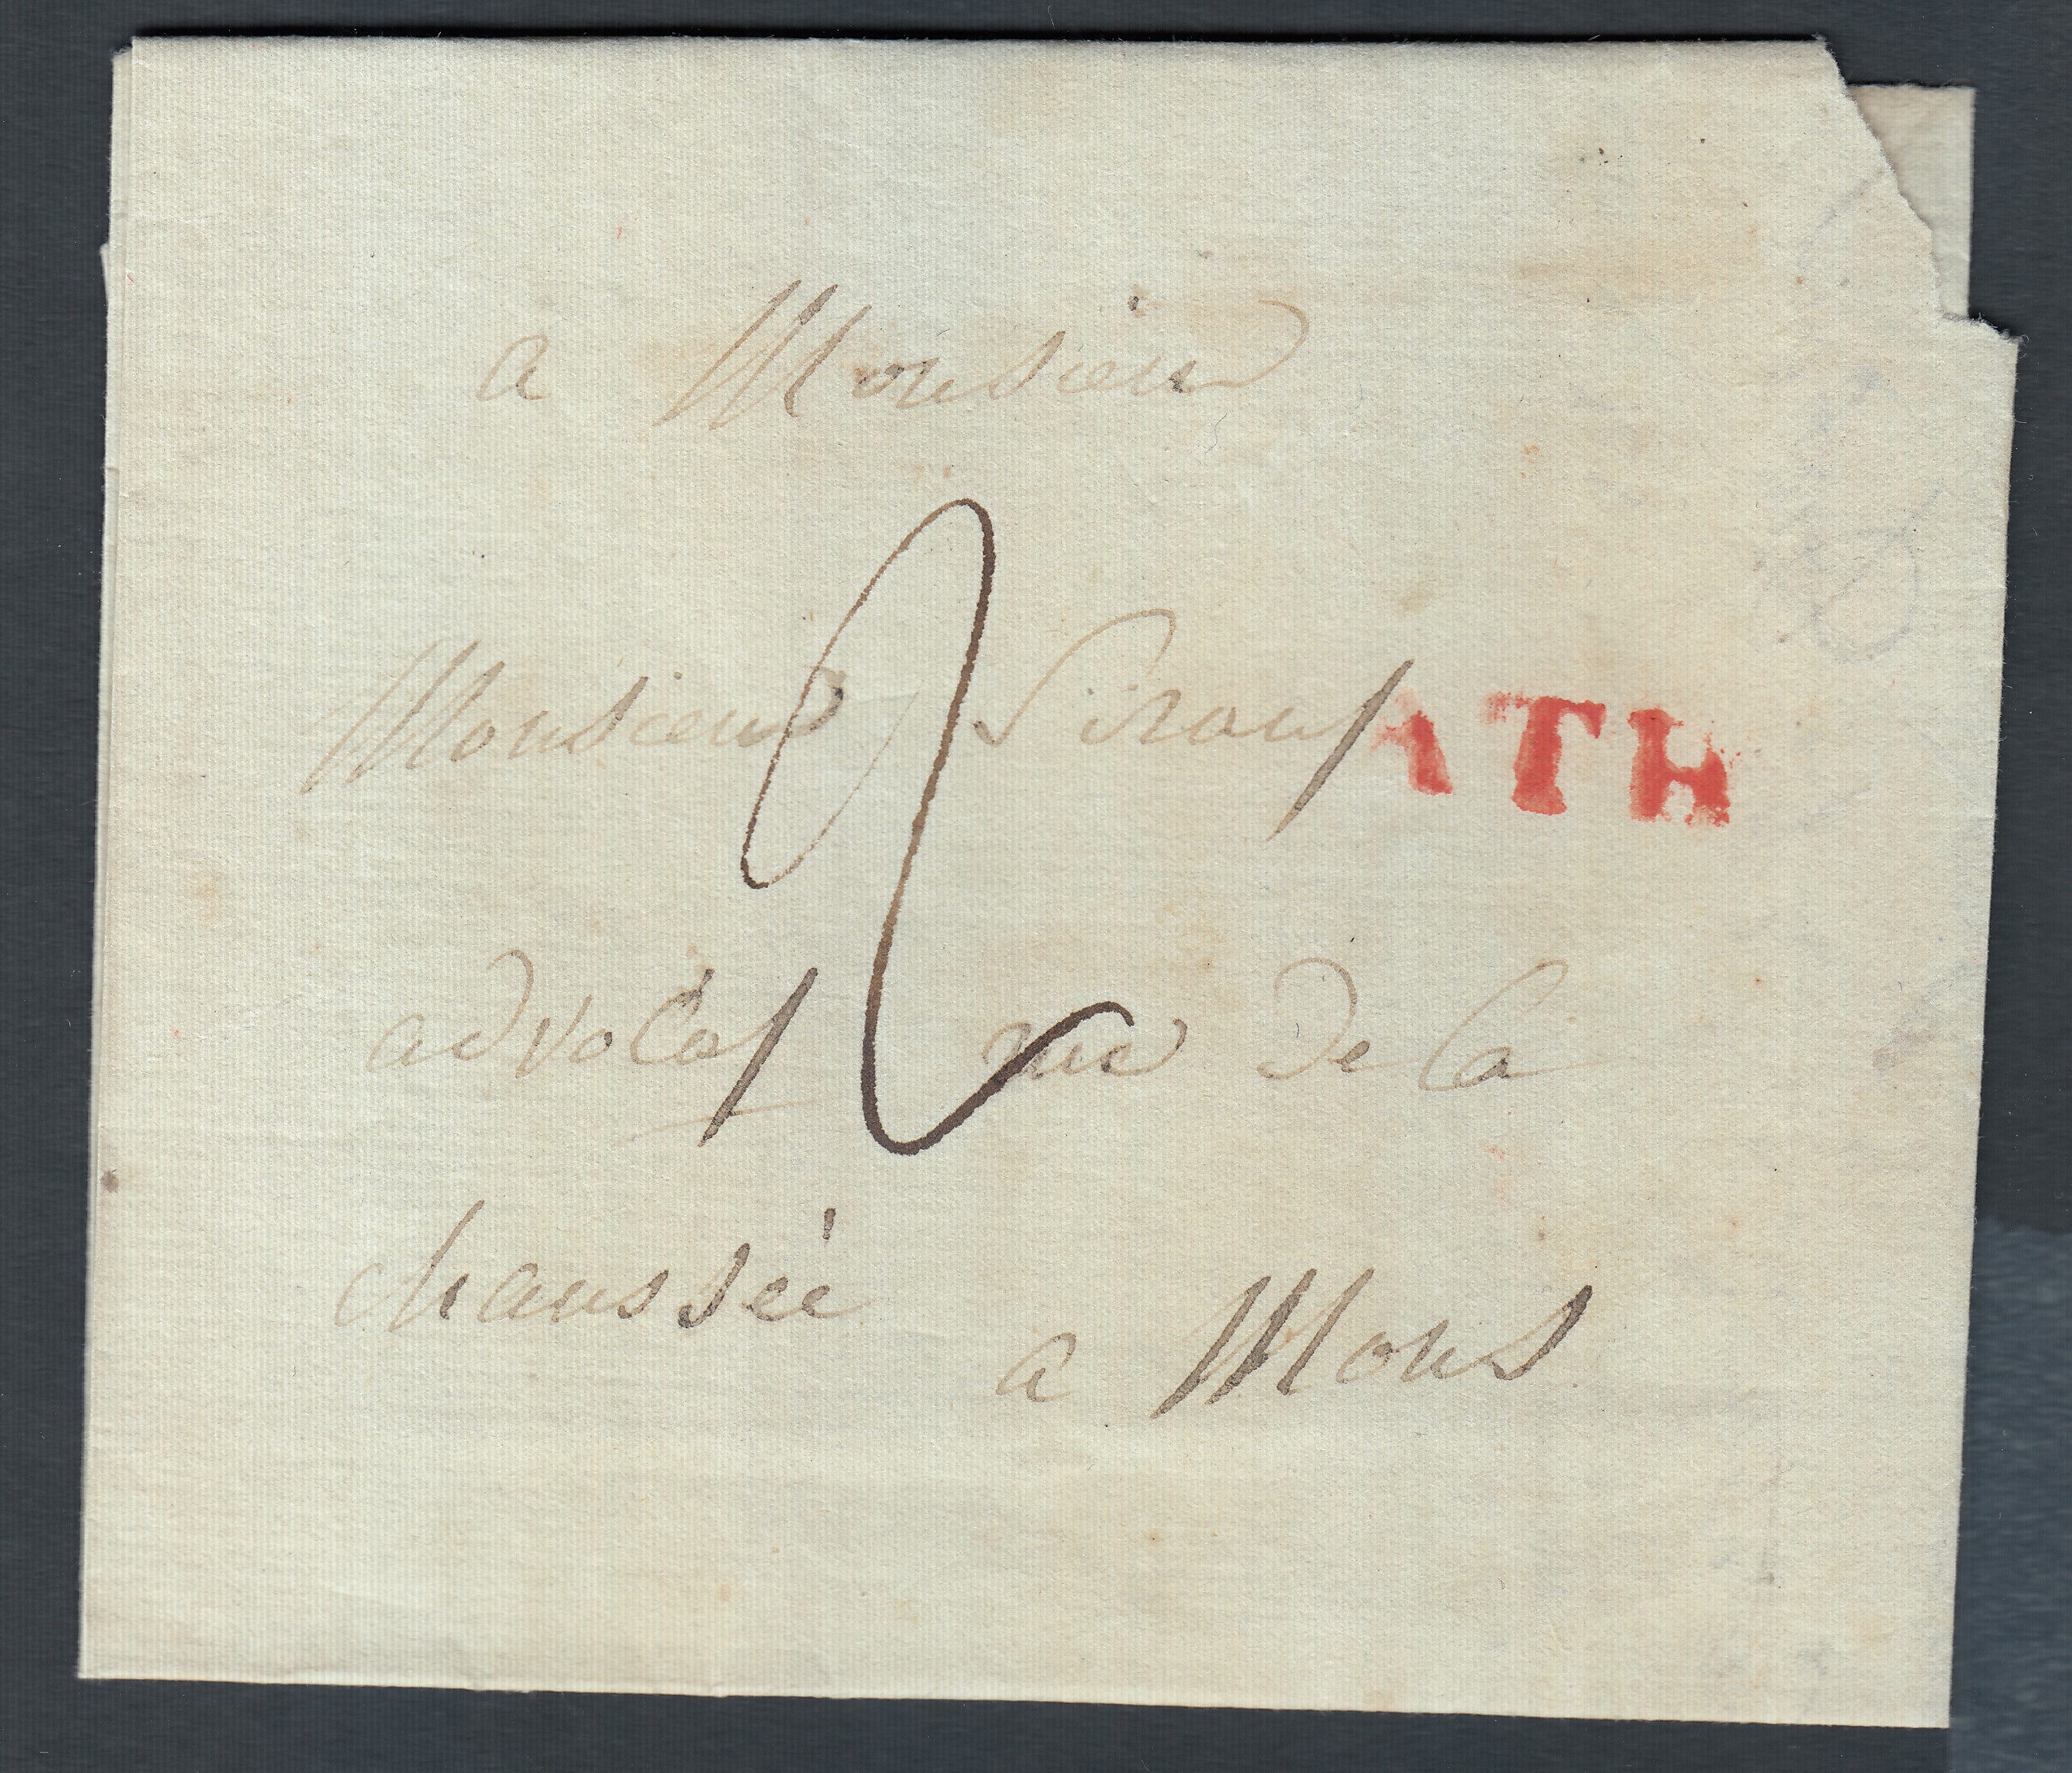 a Monsieur
2
Monsieur Pirout ATH
advocat rue de la
chaussée
a Mons